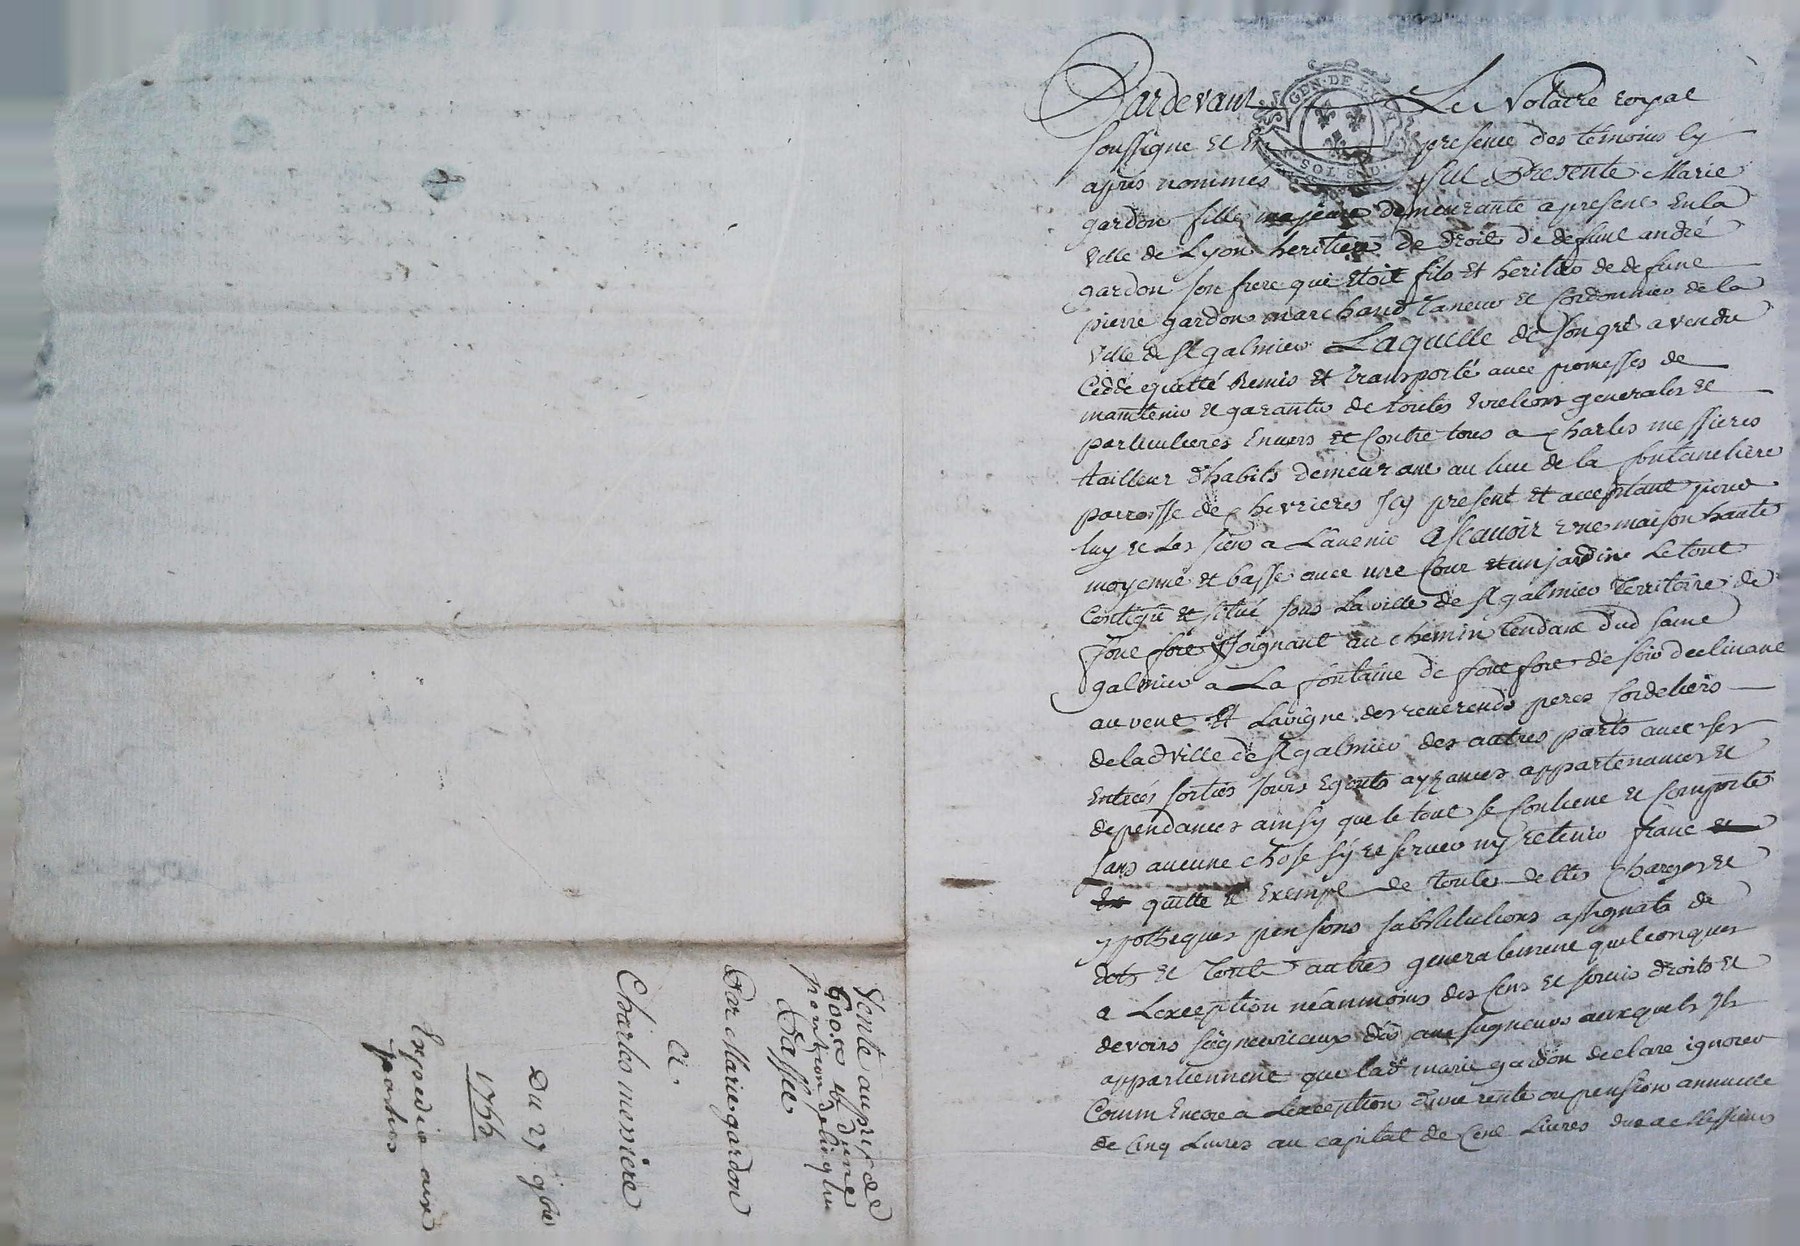 Pardevant Le Notaire royal
soussigne et en presence des temoins cy
apres nommes fut Presente Marie
gardon fille majeure demeurante apresent En la
ville de Lyon heritiere de droit de defunt andré
gardon son frere qui etoit fils et heritier de defunt
pierre gardon marchand Taneur et Cordonnier de la
ville de St galmier Laquelle de son gré a vendu
Cedé quitté Remis et transporté avec promesses de
maintenir et garantir de toutes Evictions generales et
particulieres Envers et Contre tous a Charles messieres
tailleur d'habits demeurant au lieu de la fontaneliere
parroisse de Chevrieres Icy present et acceptant pour
luy et Les siens a L'avenir Ascavoir Une maison haute
moyenne et basse avec une Cour et un jardin Le tout
Contigu et situé sous La ville de St galmier Territoire de
font fort Joignant au chemin tendant dud saint
galmier a La fontaine de font fort de soir declinant
au vent Et La vigne des reverends peres Cordeliers
de lad ville de St galmier des autres parts avec ses
Entrées sorties Jours Egouts ayzances appartenances et
dependances ainsy que le tout se Contient et Comporte
sans aucune chose sy reserver ny retenir franc et
quitte et Exempt de toutes dettes Charges et
ypotheques pensions substitutions assignats de
dots et toute autres generalement quelconques
a Lexception néanmoins des Cens et servis droits et
devoirs seigneuriaux dûs aux seigneurs auxquels Ils
appartiennent que lad marie gardon declare ignorer
Comm Encore a Lexception d'une rente ou pension annuelle
de Cinq Livres au capital de Cent Livres due a Messieurs
GEN. DE LYON
SOL
Vente au prix de
600 et d'une
pention
Passée
Par Marie gardon
a
Charles messiere
Du 27 9bre
1766
Expedié aux
parties